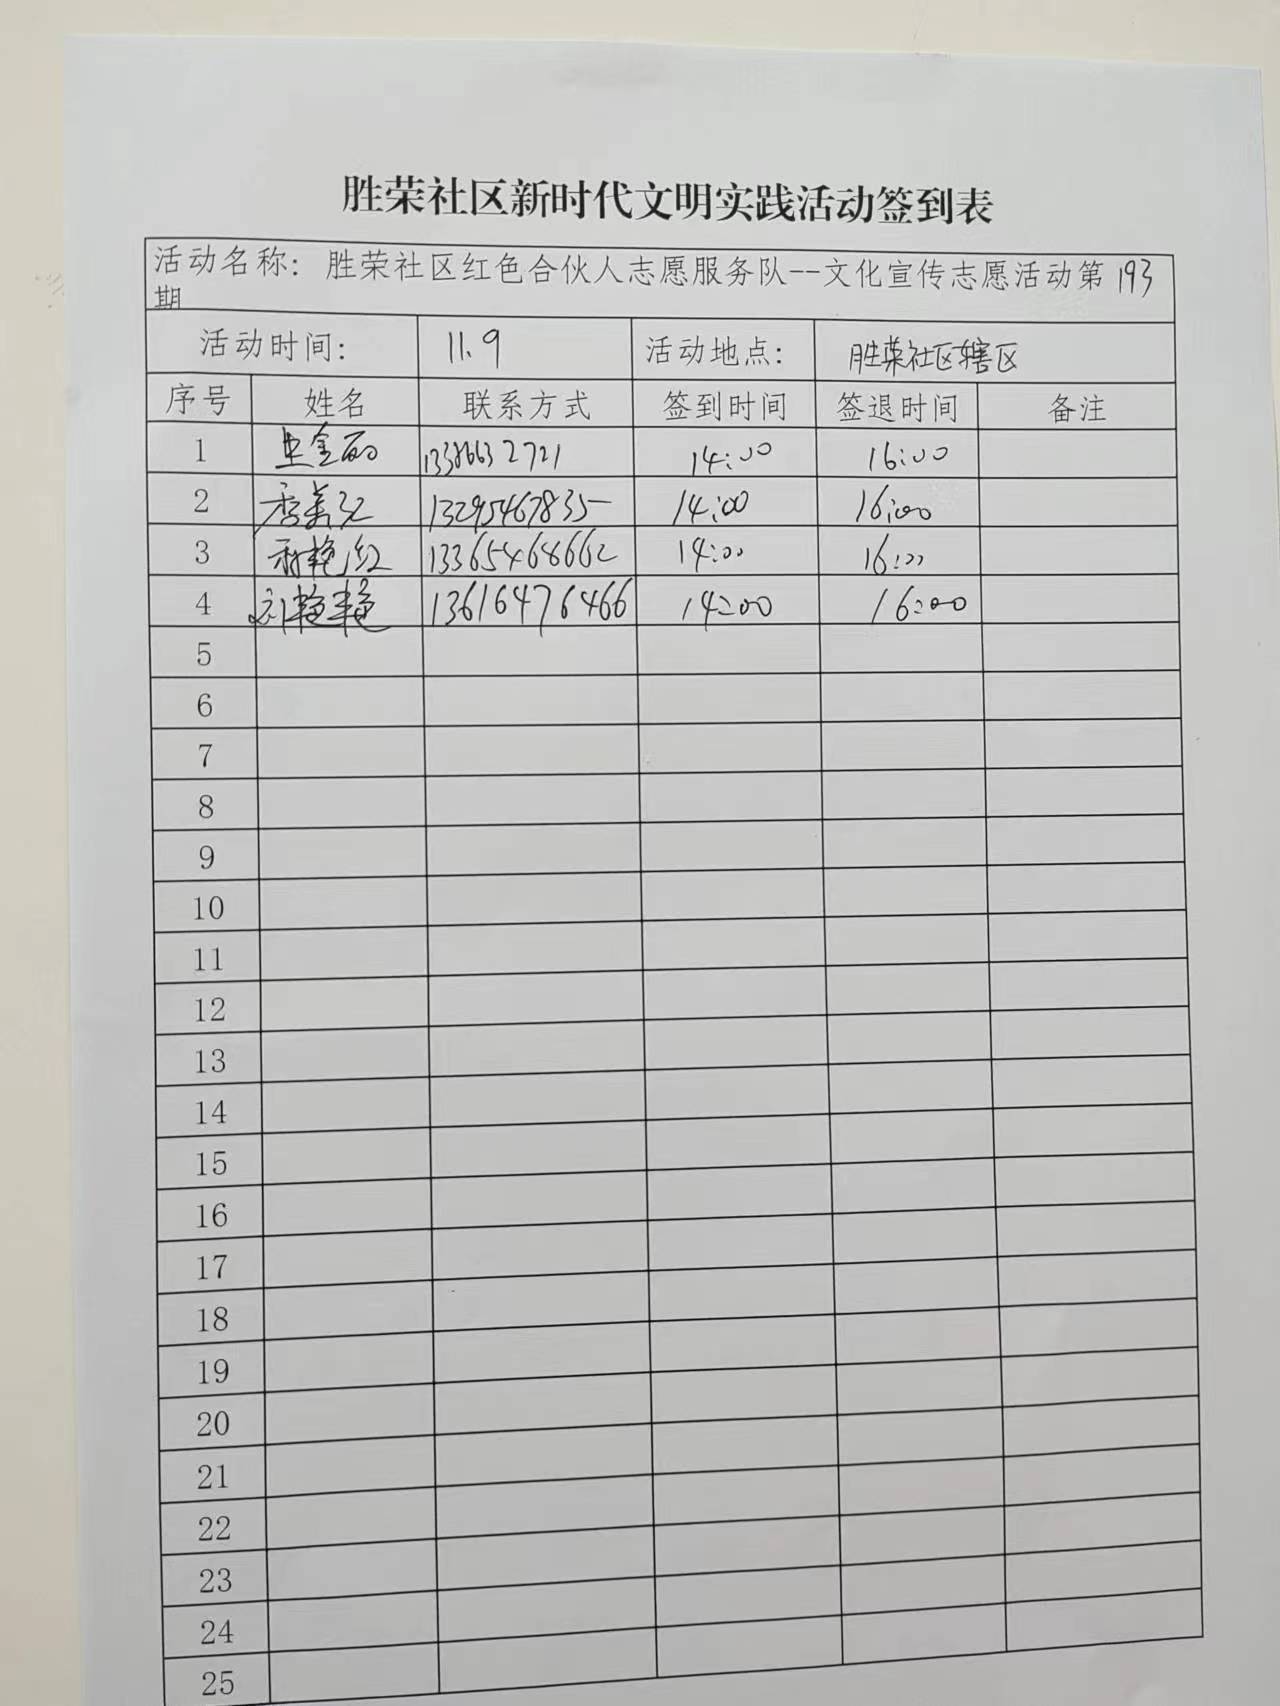 胜荣社区新时代文明实践活动签到表
活动名称：胜荣社区红色合伙人志愿服务队--文化宣传志愿活动第193
期
活动时间： 11.9 活动地点： 胜荣社区辖区
序号 姓名 联系方式 签到时间 签退时间 备注
1 13386632721 14:00 16:00
2 13295467835 14:00 16:00
3 艳红 13365468662 14:00 16:00
4 刘艳艳 13616476466 14:00 16:00
5
6
7
8
9
10
11
12
13
14
15
16
17
18
19
20
21
22
23
24
25